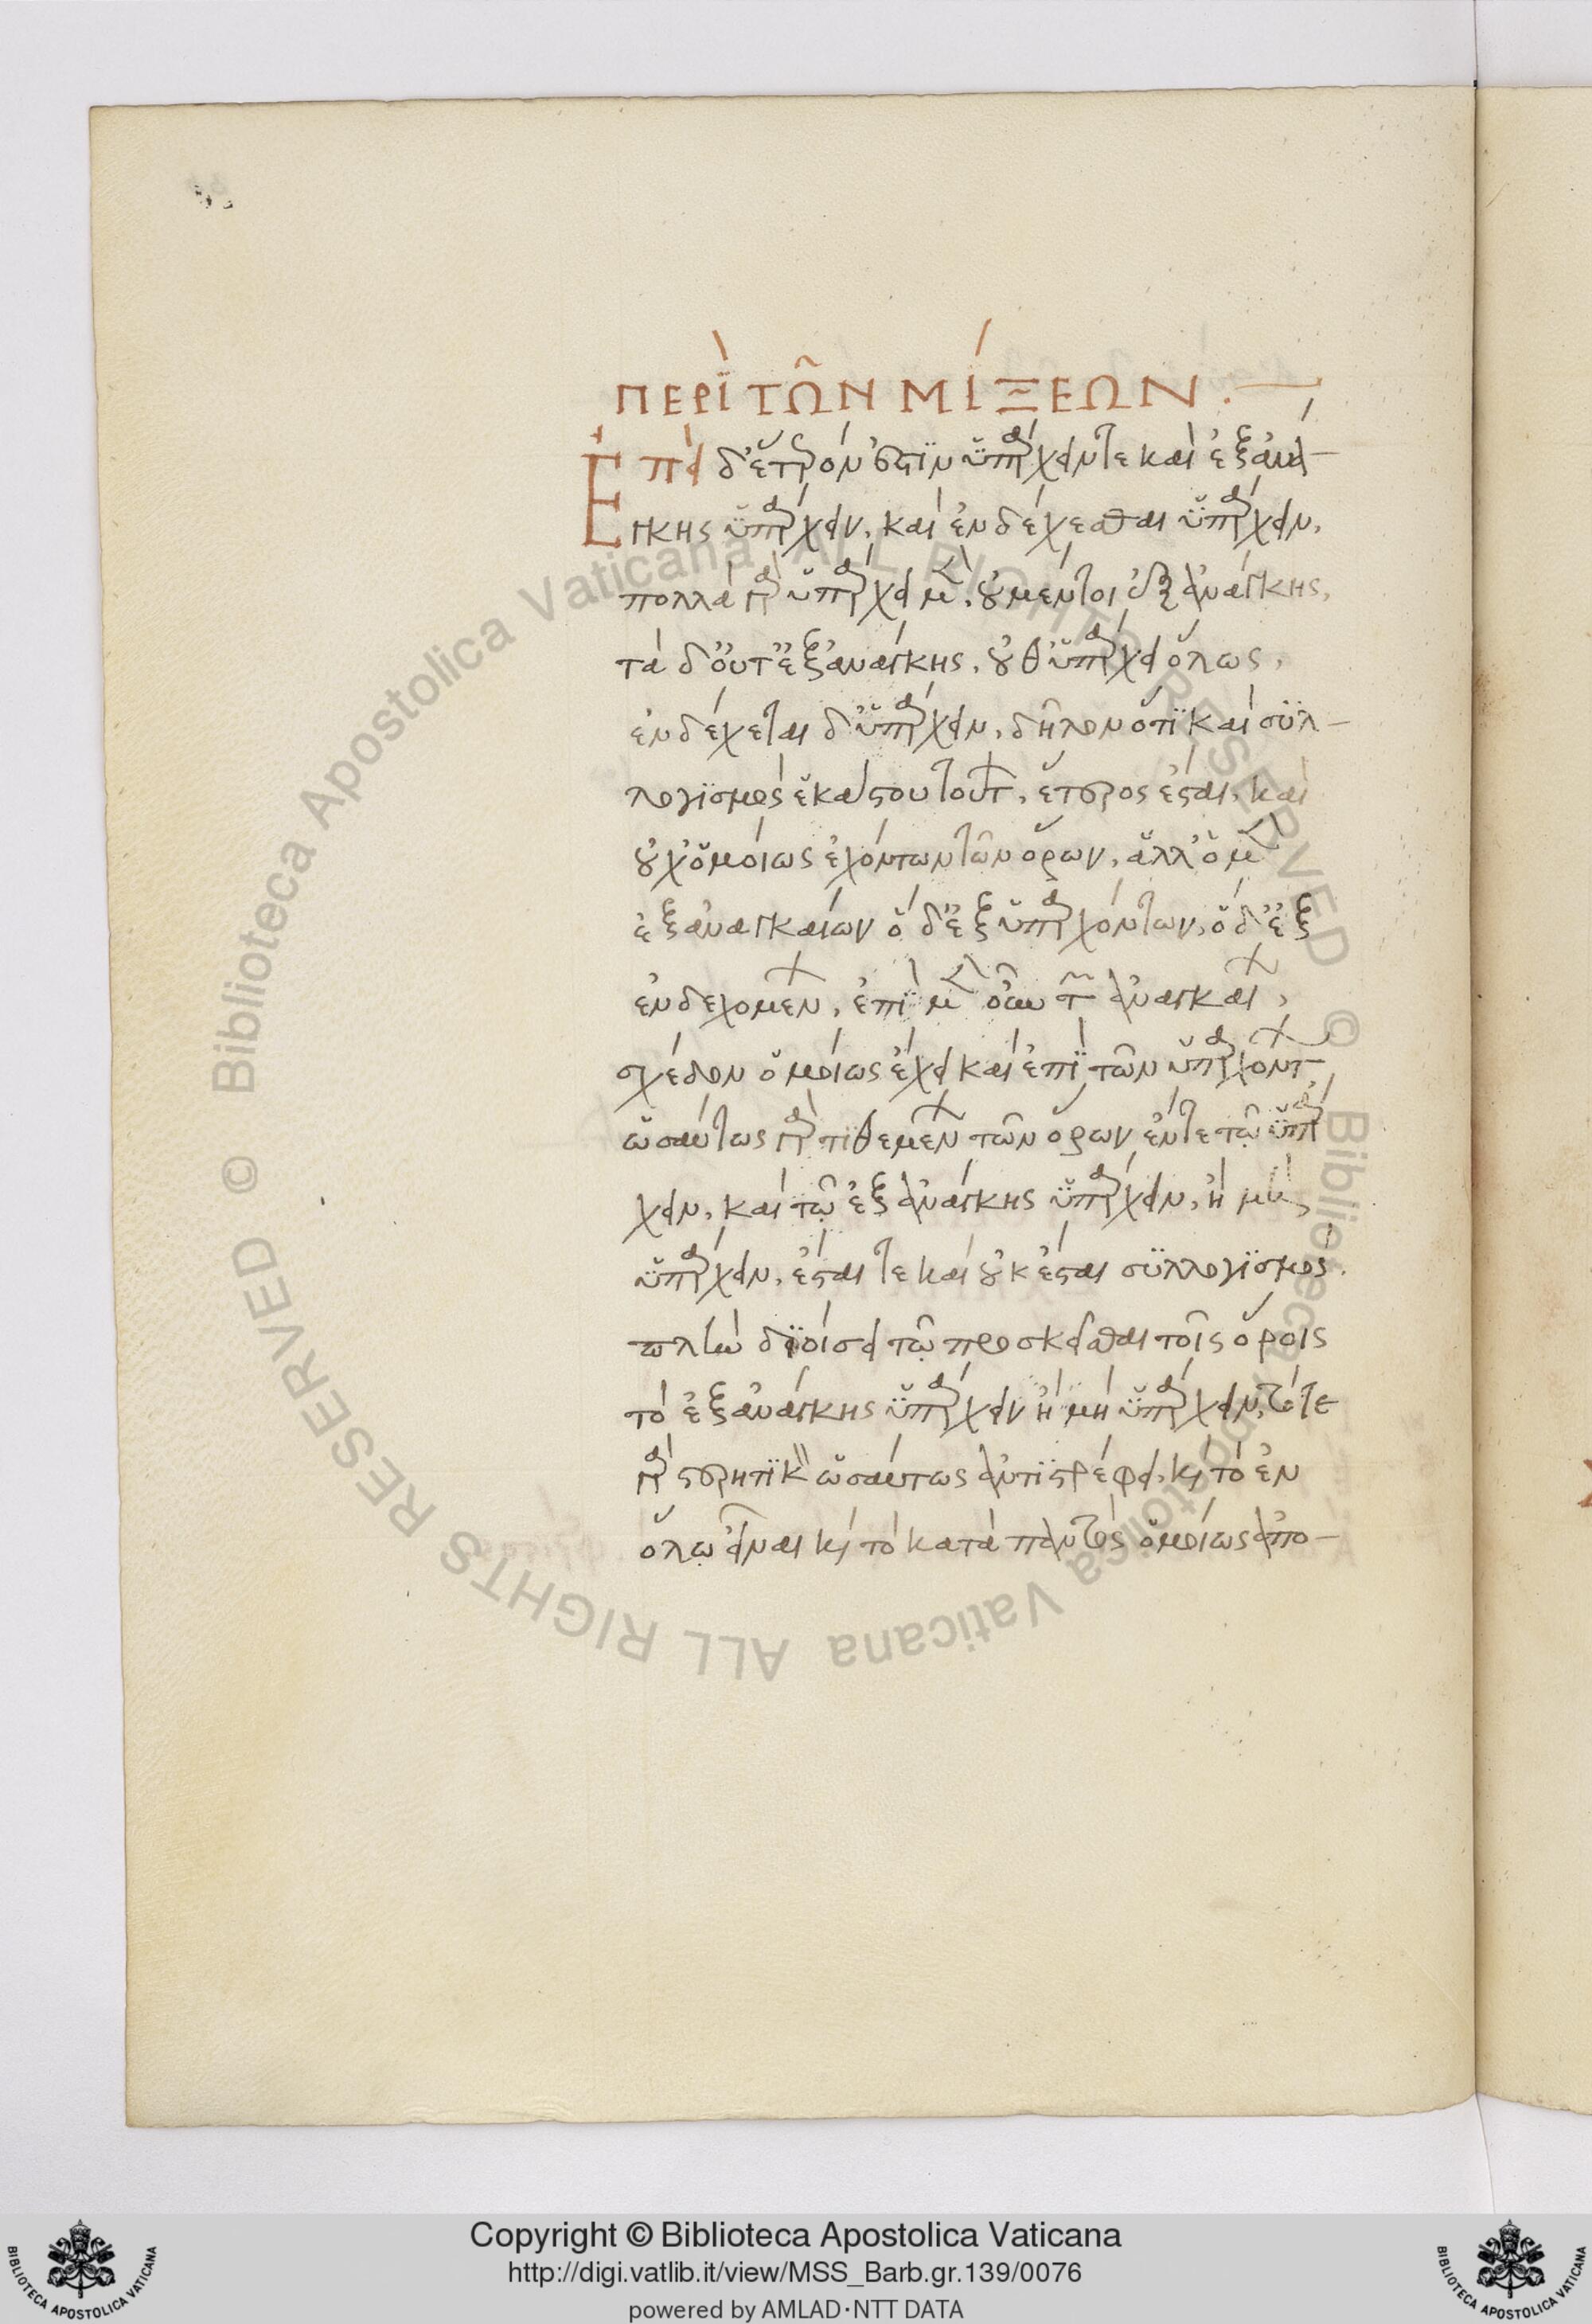 ΠΕΡῚ ΤΩ͂Ν ΜΊΞΕΩΝ.
Ἐπεὶ δ' ἕτερόν ἐστιν ὑπάρχειν τε καὶ ἐξ ἀνά-
γκης ὑπάρχειν, καὶ ἐνδέχεσθαι ὑπάρχειν,
πολλὰ γὰρ ὑπάρχει μὲν, οὐ μέντοι ἐξ ἀνάγκης,
τὰ δ' οὔτ' ἐξ ἀνάγκης, οὔθ' ὑπάρχει ὅλως,
ἐνδέχεται δ' ὑπάρχειν, δῆλον ὅτι καὶ συλ-
λογισμὸς ἑκάστου τούτων, ἕτερος ἔσται, καὶ
οὐχ ὁμοίως ἐχόντων τῶν ὅρων, ἀλλ' ὁ μὲν
ἐξ ἀναγκαίων ὁ δ' ἐξ ὑπαρχόντων, ὁ δ' ἐξ
ἐνδεχομένων, ἐπὶ μὲν οὖν τῶν ἀναγκαίων,
σχεδὸν ὁμοίως ἔχει καὶ ἐπὶ τῶν ὑπαρχόντων
ὡσαύτως γὰρ τιθεμένων τῶν ὅρων ἔν τε τῷ ὑπάρ
χειν, καὶ τῷ ἐξ ἀνάγκης ὑπάρχειν, ἢ μὴ
ὑπάρχειν, ἔσται τε καὶ οὐκ ἔσται συλλογισμός.
πλὴν διοίσει τῷ προσκεῖσθαι τοῖς ὅροις
τὸ ἐξ ἀνάγκης ὑπάρχειν ἢ μὴ ὑπάρχειν, τό τε
γὰρ στερητικὸν ὡσαύτως ἀντιστρέφει, καὶ τὸ ἐν
ὅλῳ εἶναι καὶ τὸ κατὰ παντὸς ὁμοίως ἀπο-
Copyright © Biblioteca Apostolica Vaticana
http://digi.vatlib.it/view/MSS_Barb.gr.139/0076
powered by AMLAD·NTT DATA
BIBLIOTECA APOSTOLICA VATICANA
BIBLIOTECA APOSTOLICA VATICANA
© Biblioteca Apostolica Vaticana ALL RIGHTS RESERVED © Biblioteca Apostolica Vaticana ALL RIGHTS RESERVED